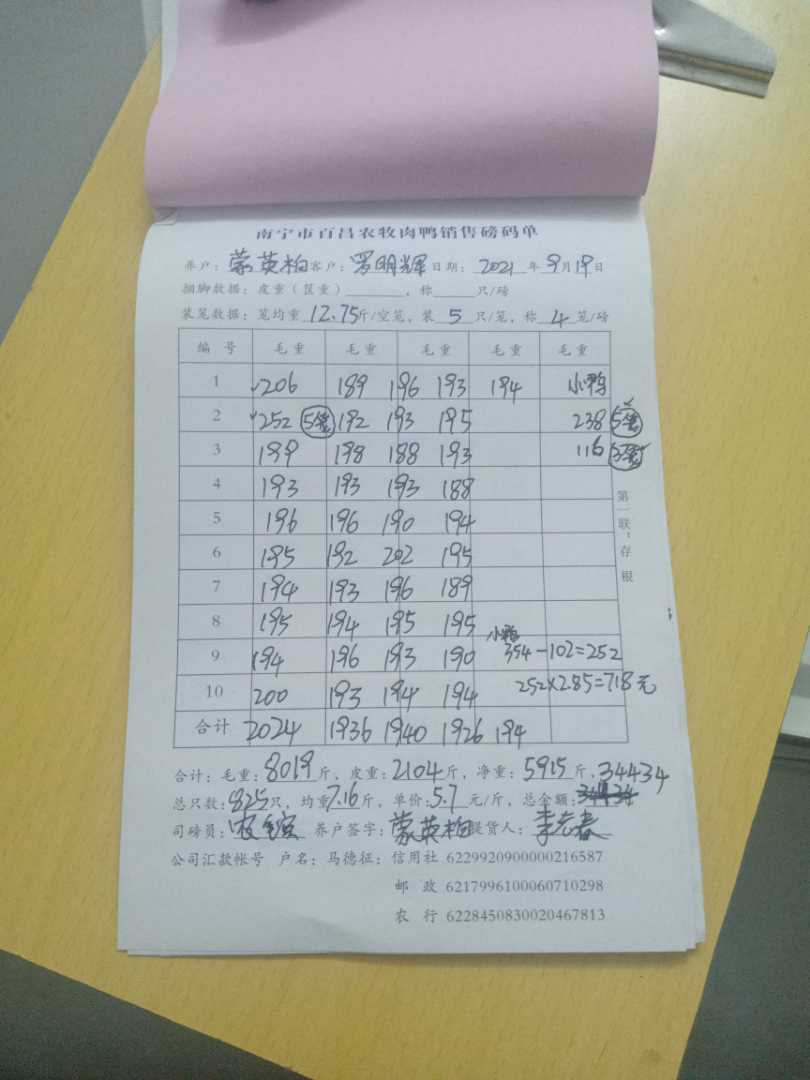 南宁市百昌农牧肉鸭销售磅码单
养户：蒙英柏 客户：罗明辉 日期：2021年9月19日
捆脚数据：皮重（筐重） ，称 只/磅
装笼数据：笼均重12.75斤/空笼，装5只/笼，称4笼/磅
编号 毛重 毛重 毛重 毛重 毛重
1 206 189 196 193 194 小鸭
2 252 5笼 192 193 195 238 5笼
3 199 198 188 193 116 3笼
4 193 193 193 188
5 196 196 190 194
6 195 192 202 195
7 194 193 196 189
8 195 194 195 195
小鸭
9 194 196 193 190 354-102=252
10 200 193 194 194 252×2.85=718元
合计 2024 1936 1940 1926 194
第一联：存根
合计：毛重：8019斤，皮重：2104斤，净重：5915斤，34434
总只数：825只，均重7.16斤，单价：5.7元/斤，总金额：34434
司磅员： 养户签字：蒙英柏 提货人：李宏春
公司汇款帐号 户名：马德征：信用社 6229920900000216587
邮政 6217996100060710298
农行 6228450830020467813